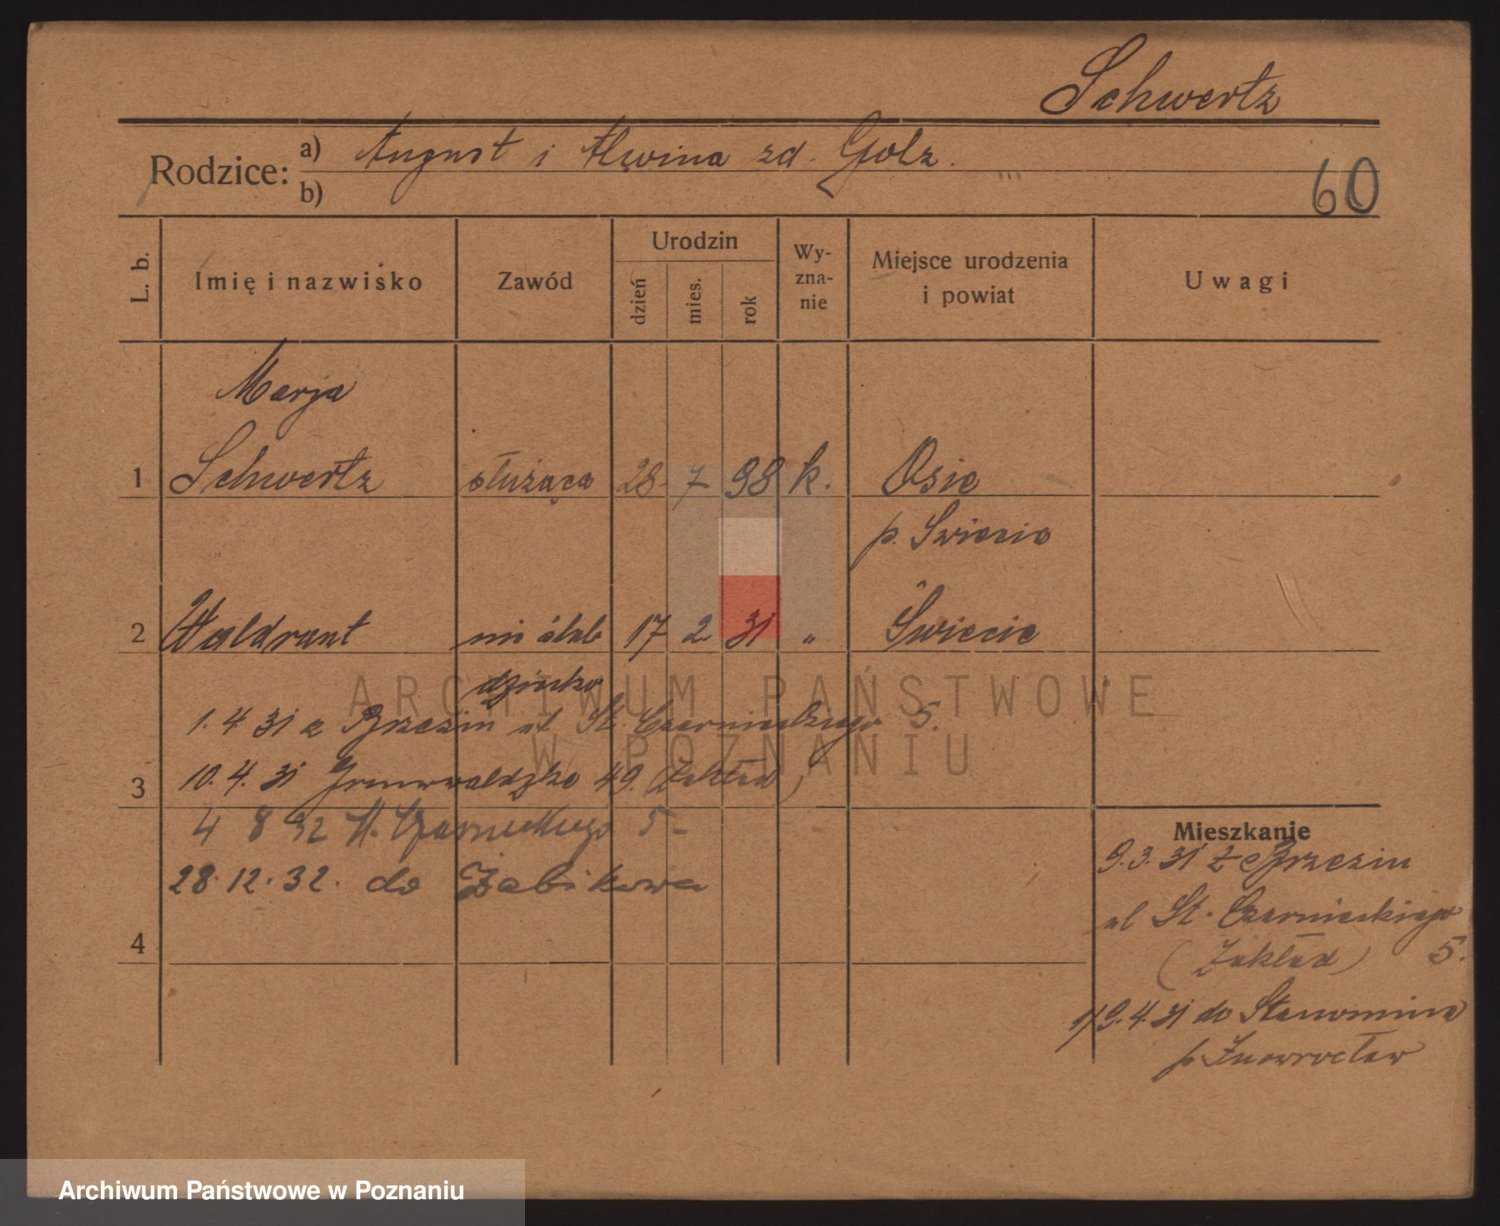 Schwertz
Rodzice: a) August i Alwina zd. Golz.
b)
60
L. b. Imię i nazwisko Zawód Urodzin dzień mies. rok Wyznanie Miejsce urodzenia i powiat Uwagi
Marja
1 Schwertz służąca 28 7 98 k. Osie
p. Świecie
2 Waldraut nieślub 17 2 31 „ Świecie
dziecko
ARCHIWUM PAŃSTWOWE
1.4 31 z Brzezin ul St. Czarnieckiego 5.
W POZNANIU
3 10.4.31 Grunwaldzka 49. (Zakład)
4 8 32 St. Czarnieckiego 5
28.12.32. do Żabikowa
4
Mieszkanie
9.3.31 z Brzezin
ul St. Czarnieckiego
(Zakład) 5.
1/9.4.31 do
p Inowrocław
Archiwum Państwowe w Poznaniu